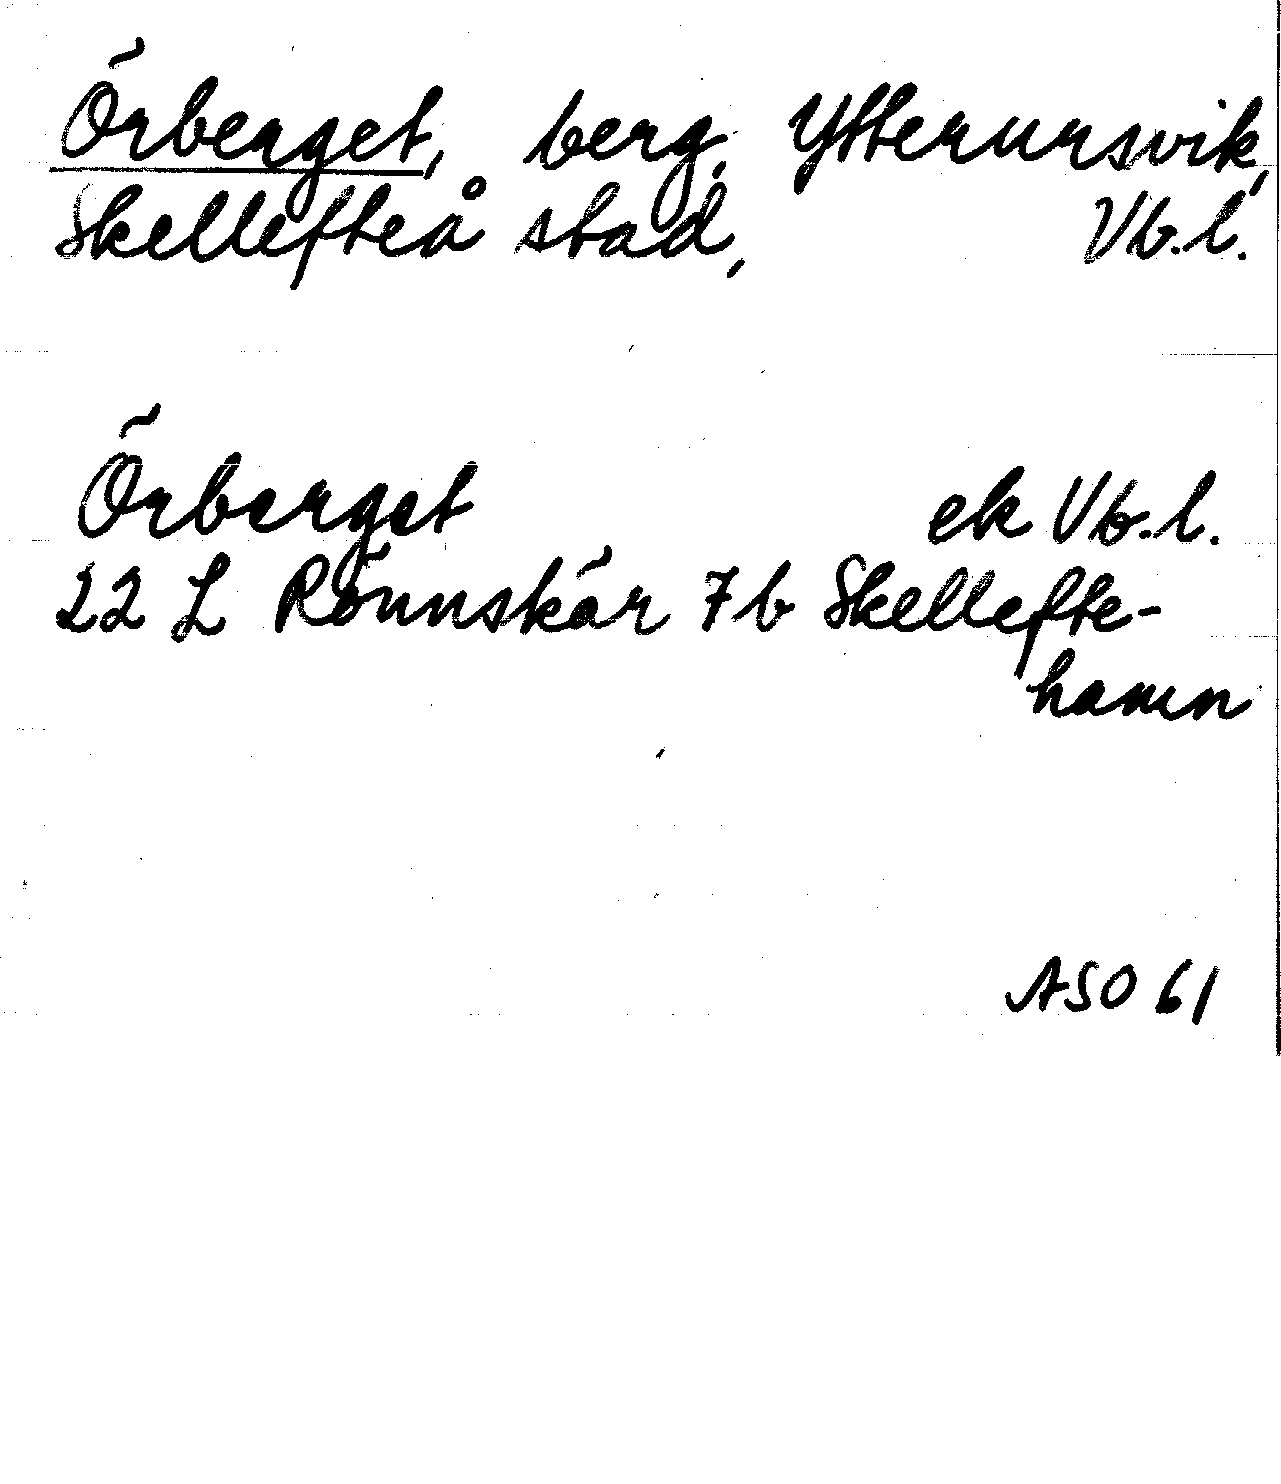 Örberget, berg, Ytterursvik,
Skellefteå stad, Vb.l.
Örberget ek Vb.l.
22 L Rönnskär 7b Skellefte-
hamn
ASO 61